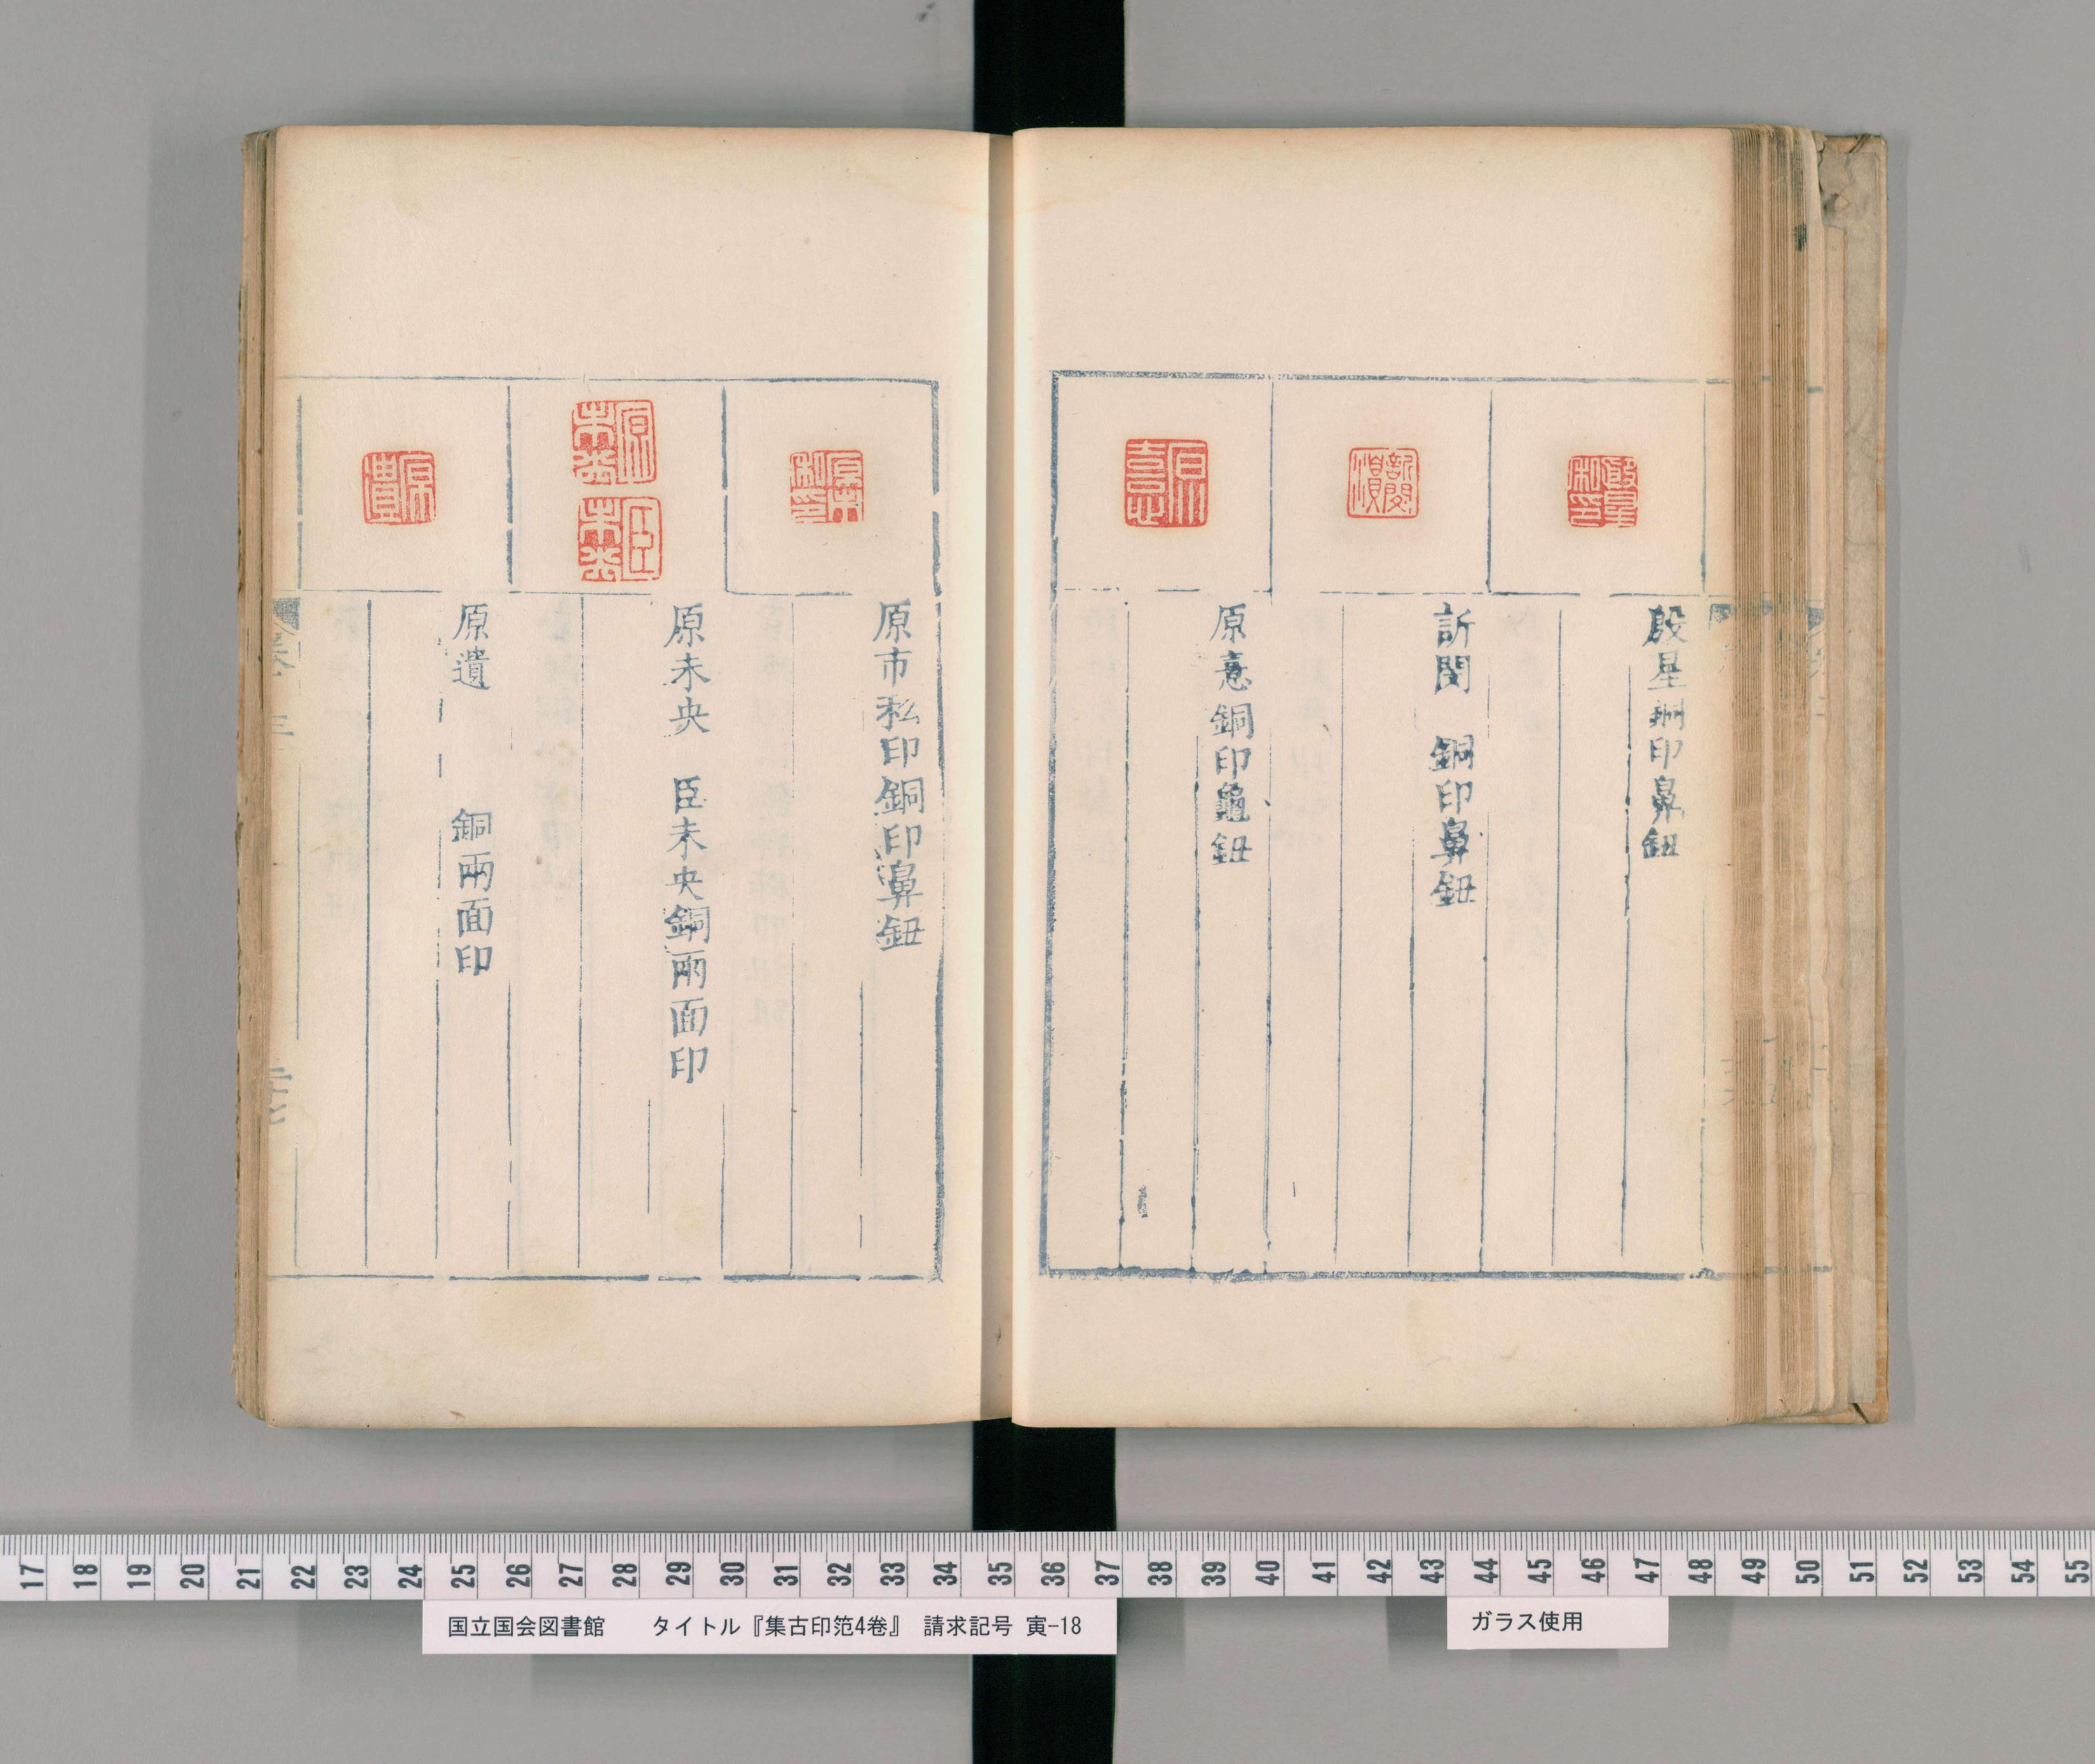 殷星銅印鼻鈕
訢閔　銅印鼻鈕
原憙銅印龜鈕
原市私印銅印鼻鈕
原未央　臣未央銅兩面印
原遺　銅兩面印
17 18 19 20 21 22 23 24 25 26 27 28 29 30 31 32 33 34 35 36 37 38 39 40 41 42 43 44 45 46 47 48 49 50 51 52 53 54 55
国立国会図書館　タイトル『集古印笵4巻』　請求記号 寅-18
ガラス使用